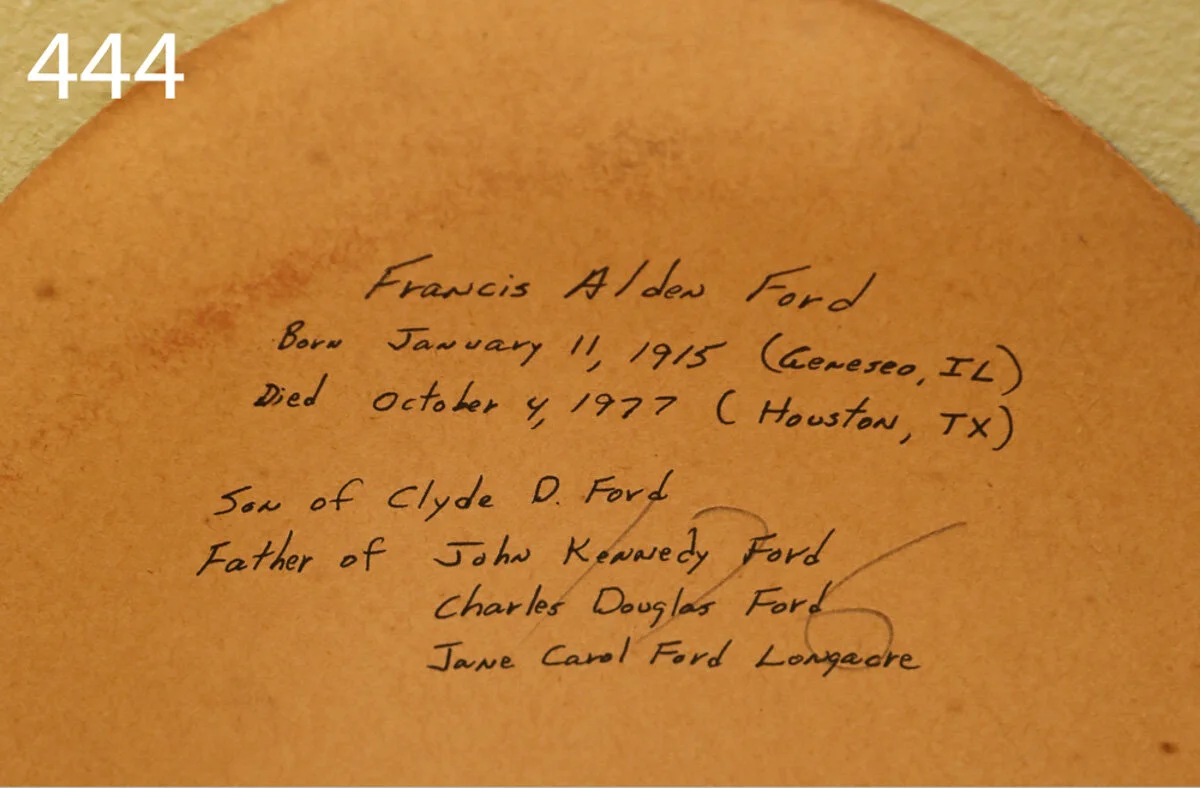 444
Francis Alden Ford
Born January 11, 1915 (Geneseo, IL)
Died October 4, 1977 (Houston, TX)
Son of Clyde D. Ford
Father of John Kennedy Ford
Charles Douglas Ford
Jane Carol Ford Longacre
126